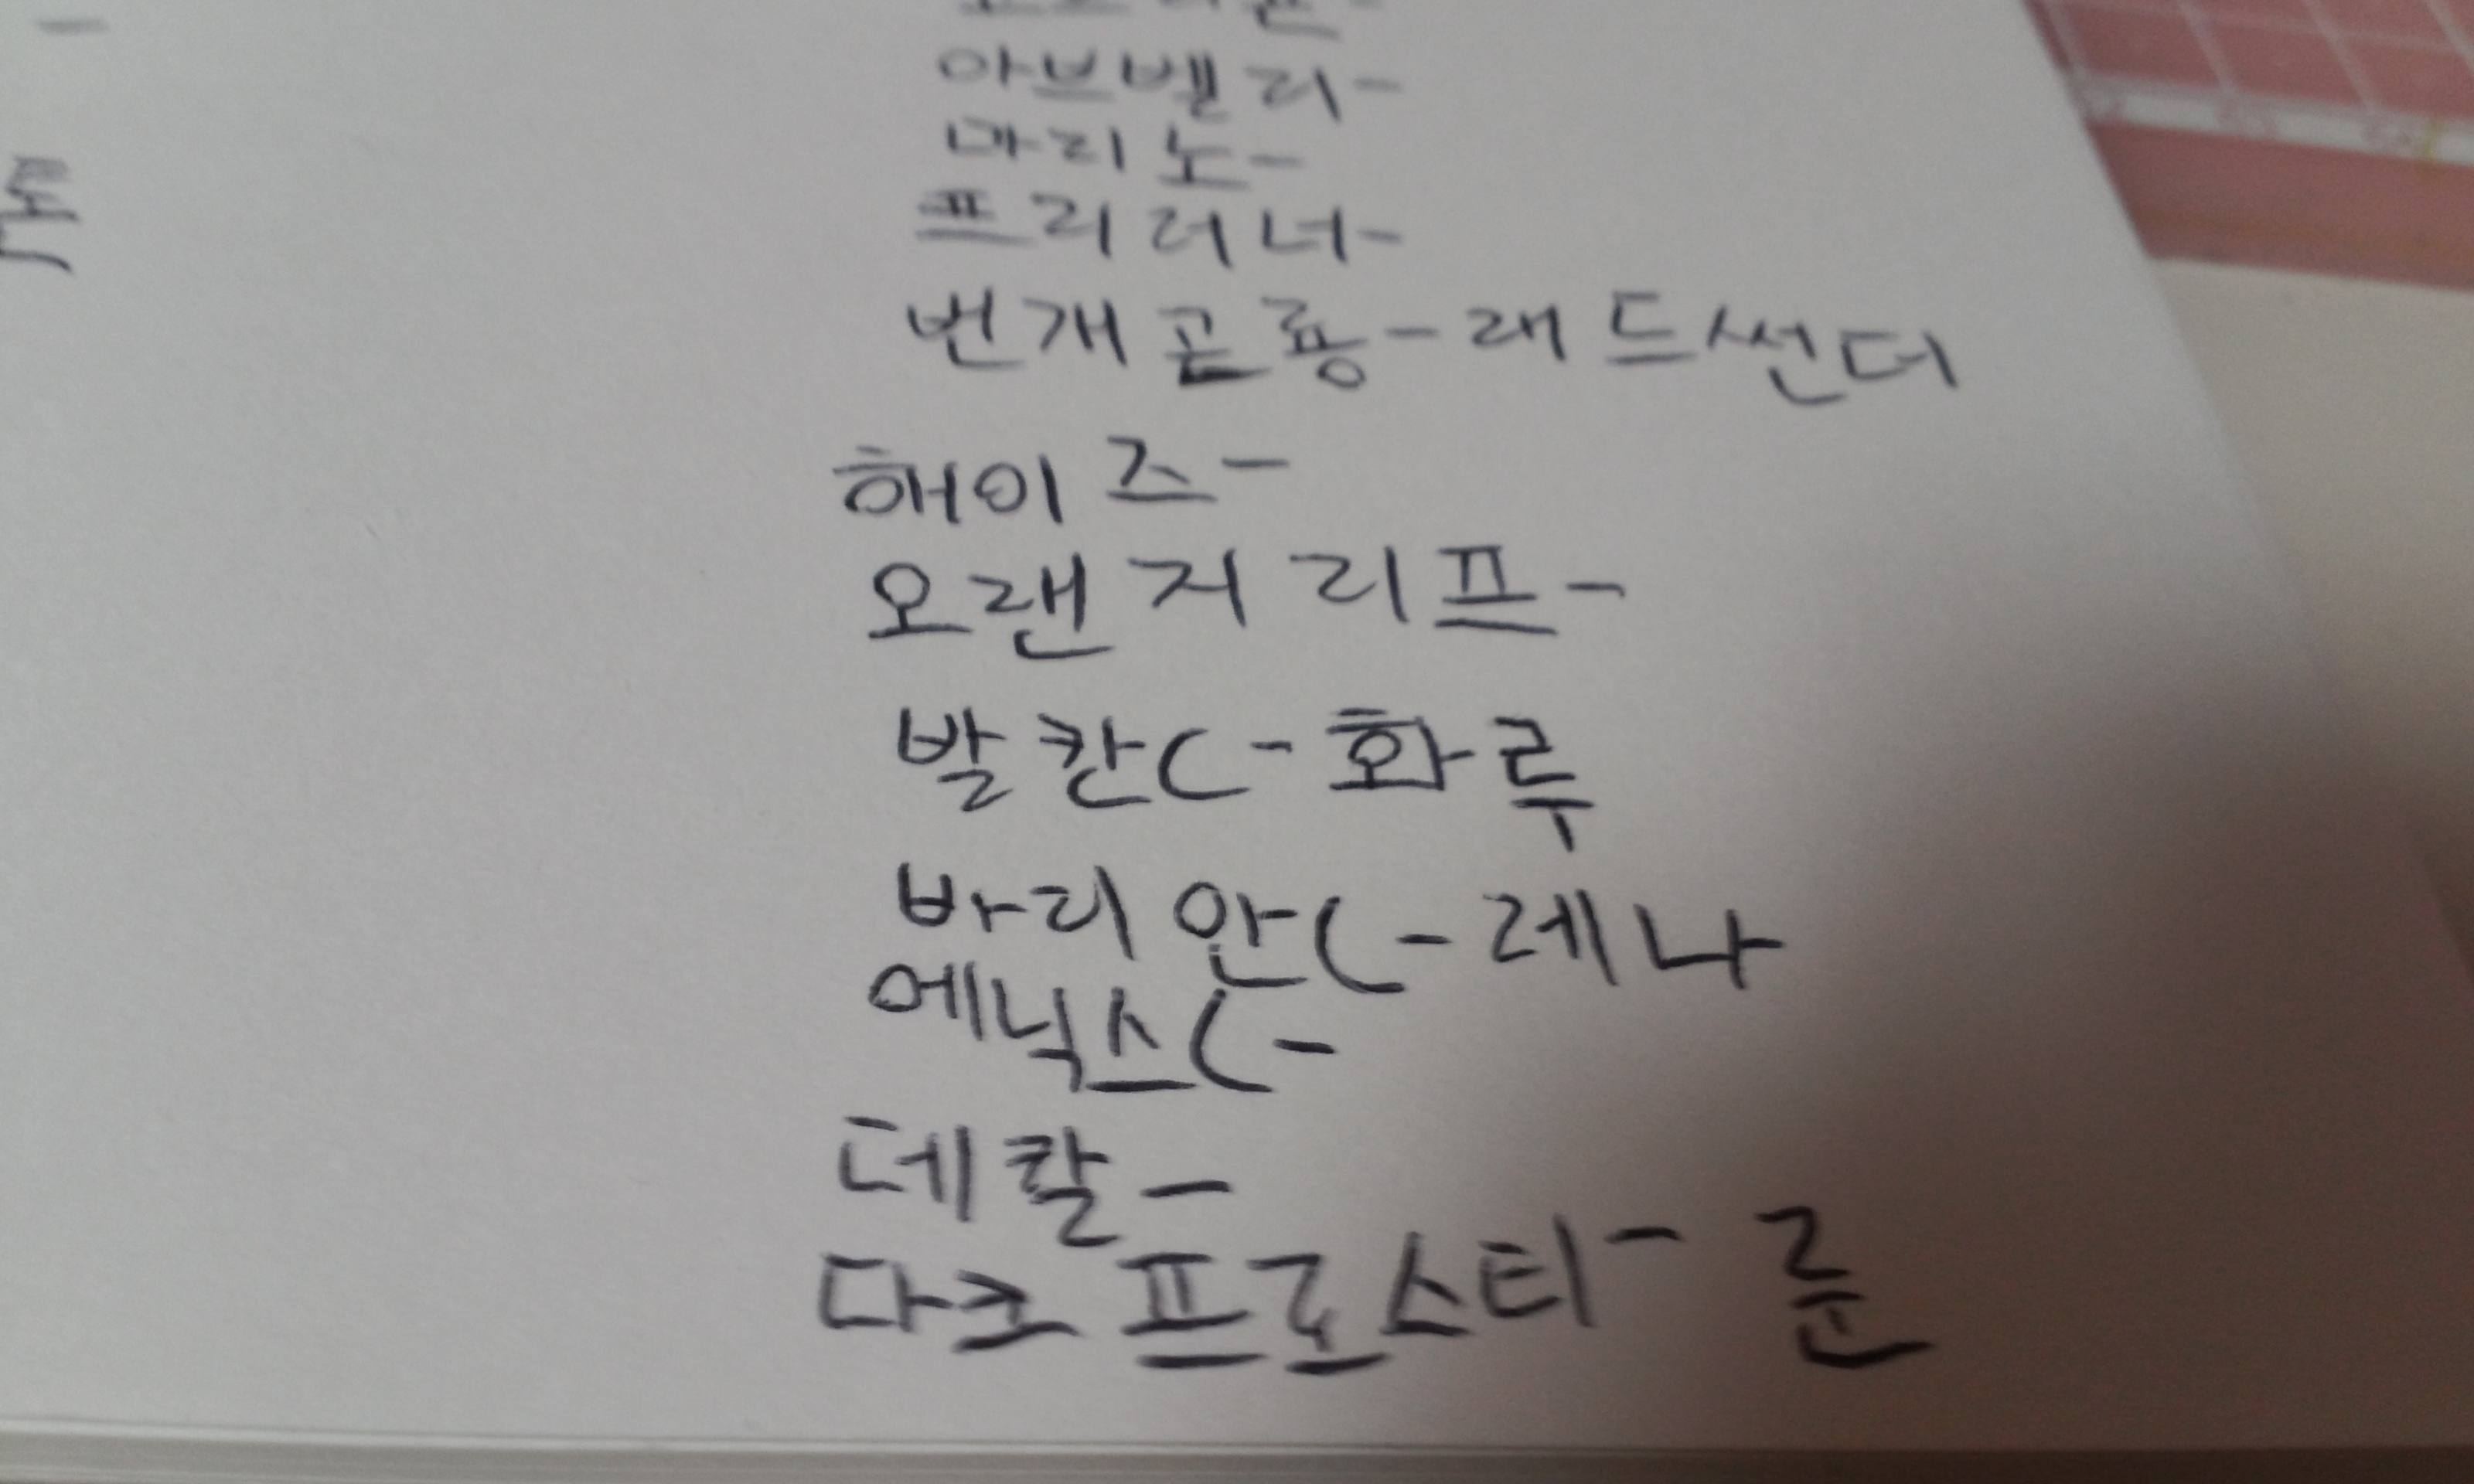 아브벨리-
마리노-
프리러너-
번개곤룡-래드썬더
해이즈-
오랜지리프-
발칸(-화루
바리안(-레나
에닉스(-
데칼-
다크프로스티-룬
톤